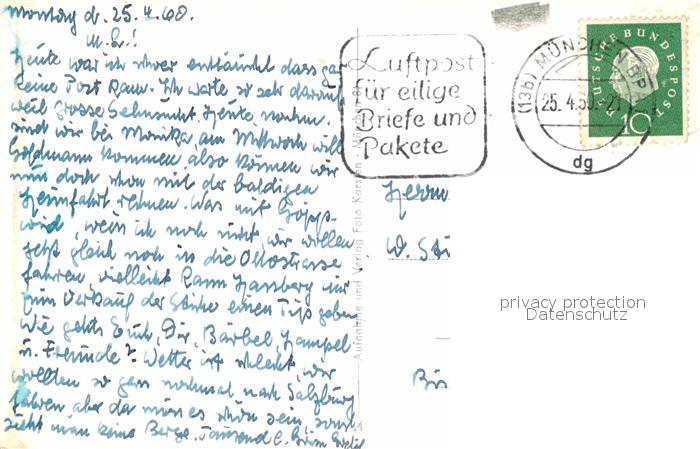 Montag d. 25.4.60.
M. L.!
Heute war ich schwer enttäuscht dass gar
keine Post kam. Ich warte so sehr darauf
weil grosse Sehnsucht. Heute nachm.
sind wir bei Monika, am Mittwoch will
Goldmann kommen also können wir
nun doch schon mit der baldigen
Heimfahrt rechnen. Was mit Göpp.
wird, weiss ich noch nicht, wir wollen
jetzt gleich noch in die Ottostrasse
fahren, vielleicht kann Hansberg mir
zum Verkauf der Sache einen Tip geben
Wie gehts Euch, Dir, Bärbel, Hampel
u. Freunde? Wetter ist schlecht, wir
wollten so gern nochmal nach Salzburg
fahren aber da muss es schön sein, sonst
sieht man keine Berge. Tausend
Luftpost
für eilige
Briefe und
Pakete
(13b) MÜNCHEN BP
25. 4. 60.-21
dg
DEUTSCHE BUNDESPOST
10
Herrn
W. Sti
Bis
Aufnahme und Verlag Foto
privacy protection
Datenschutz